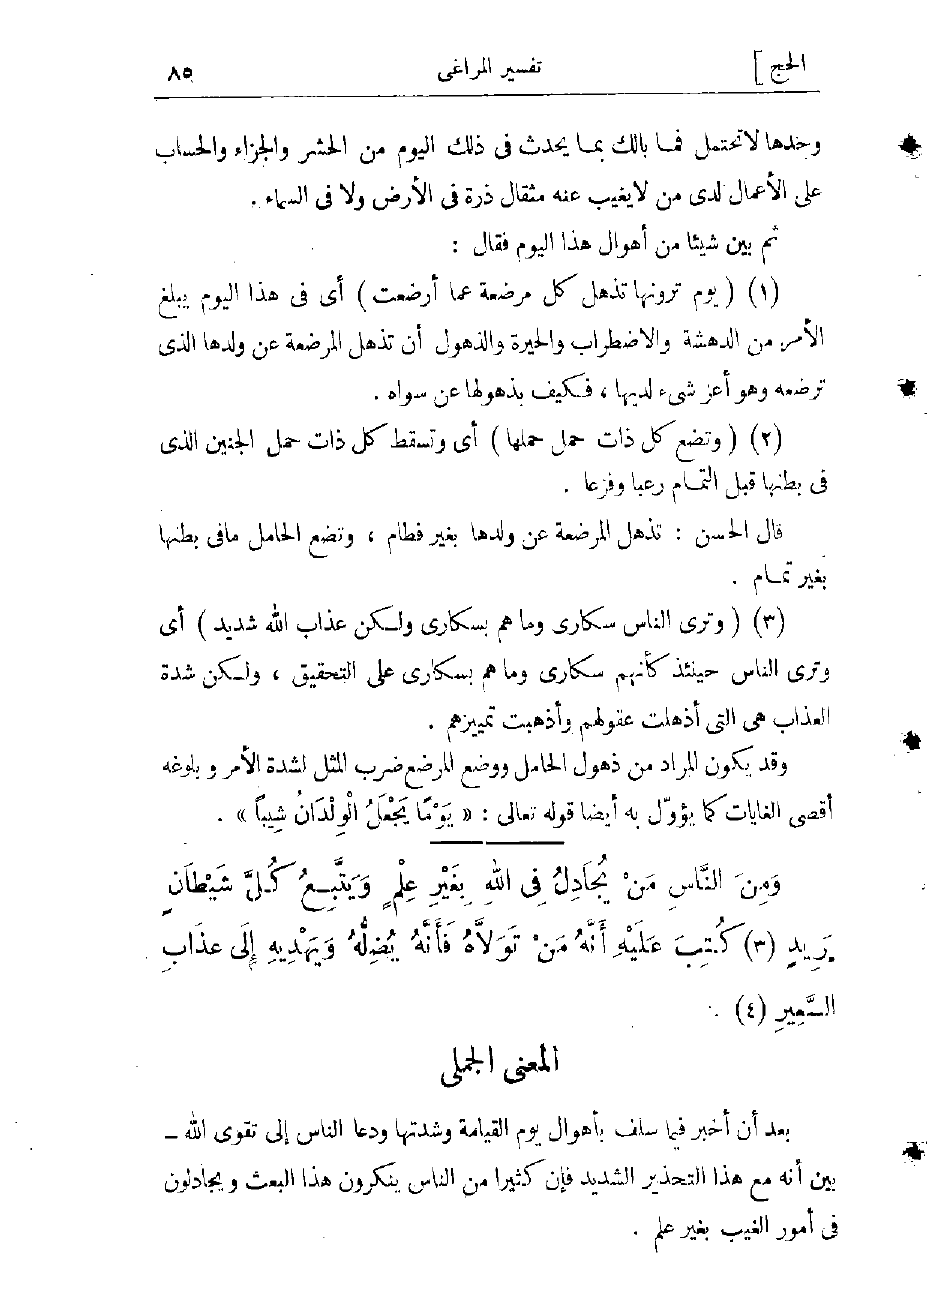 الحج ] تفسير المراغى ٨٥
وحدها لا تحتمل فما بالك بما يحدث فى ذلك اليوم من الحشر والجزاء والحساب
على الأعمال لدى من لا يغيب عنه مثقال ذرة فى الأرض ولا فى السماء .
ثم بين شيئا من أهوال هذا اليوم فقال :
(١) ( يوم ترونها تذهل كل مرضعة عما أرضعت ) أى فى هذا اليوم يبلغ
الأمر من الدهشة والاضطراب والحيرة والذهول أن تذهل المرضعة عن ولدها الذى
ترضعه وهو أعز شىء لديها ، فكيف بذهولها عن سواه .
(٢) ( وتضع كل ذات حمل حملها ) أى وتسقط كل ذات حمل الجنين الذى
فى بطنها قبل التمام رعبا وفزعا .
قال الحسن : تذهل المرضعة عن ولدها بغير فطام ، وتضع الحامل مافى بطنها
بغير تمام .
(٣) ( وترى الناس سكارى وما هم بسكارى ولكن عذاب الله شديد ) أى
وترى الناس حينئذ كأنهم سكارى وما هم بسكارى على التحقيق ، ولكن شدة
العذاب هى التى أذهلت عقولهم وأذهبت تمييزهم .
وقد يكون المراد من ذهول الحامل ووضع المرضع ضرب المثل لشدة الأمر وبلوغه
أقصى الغايات كما يؤوّل به أيضا قوله تعالى : « يَوْمًا يَجْعَلُ الْوِلْدَانَ شِيبًا » .
وَمِنَ النَّاسِ مَنْ يُجَادِلُ فِى اللهِ بِغَيْرِ عِلْمٍ وَيَتَّبِعُ كُلَّ شَيْطَانٍ
مَرِيدٍ (٣) كُتِبَ عَلَيْهِ أَنَّهُ مَنْ تَوَلاَّهُ فَأَنَّهُ يُضِلُّهُ وَيَهْدِيهِ إِلَى عَذَابِ
السَّعِيرِ (٤) .
المعنى الجملى
بعد أن أخبر فيما سلف بأهوال يوم القيامة وشدتها ودعا الناس إلى تقوى الله –
بين أنه مع هذا التحذير الشديد فإن كثيرا من الناس ينكرون هذا البعث ويجادلون
فى أمور الغيب بغير علم .